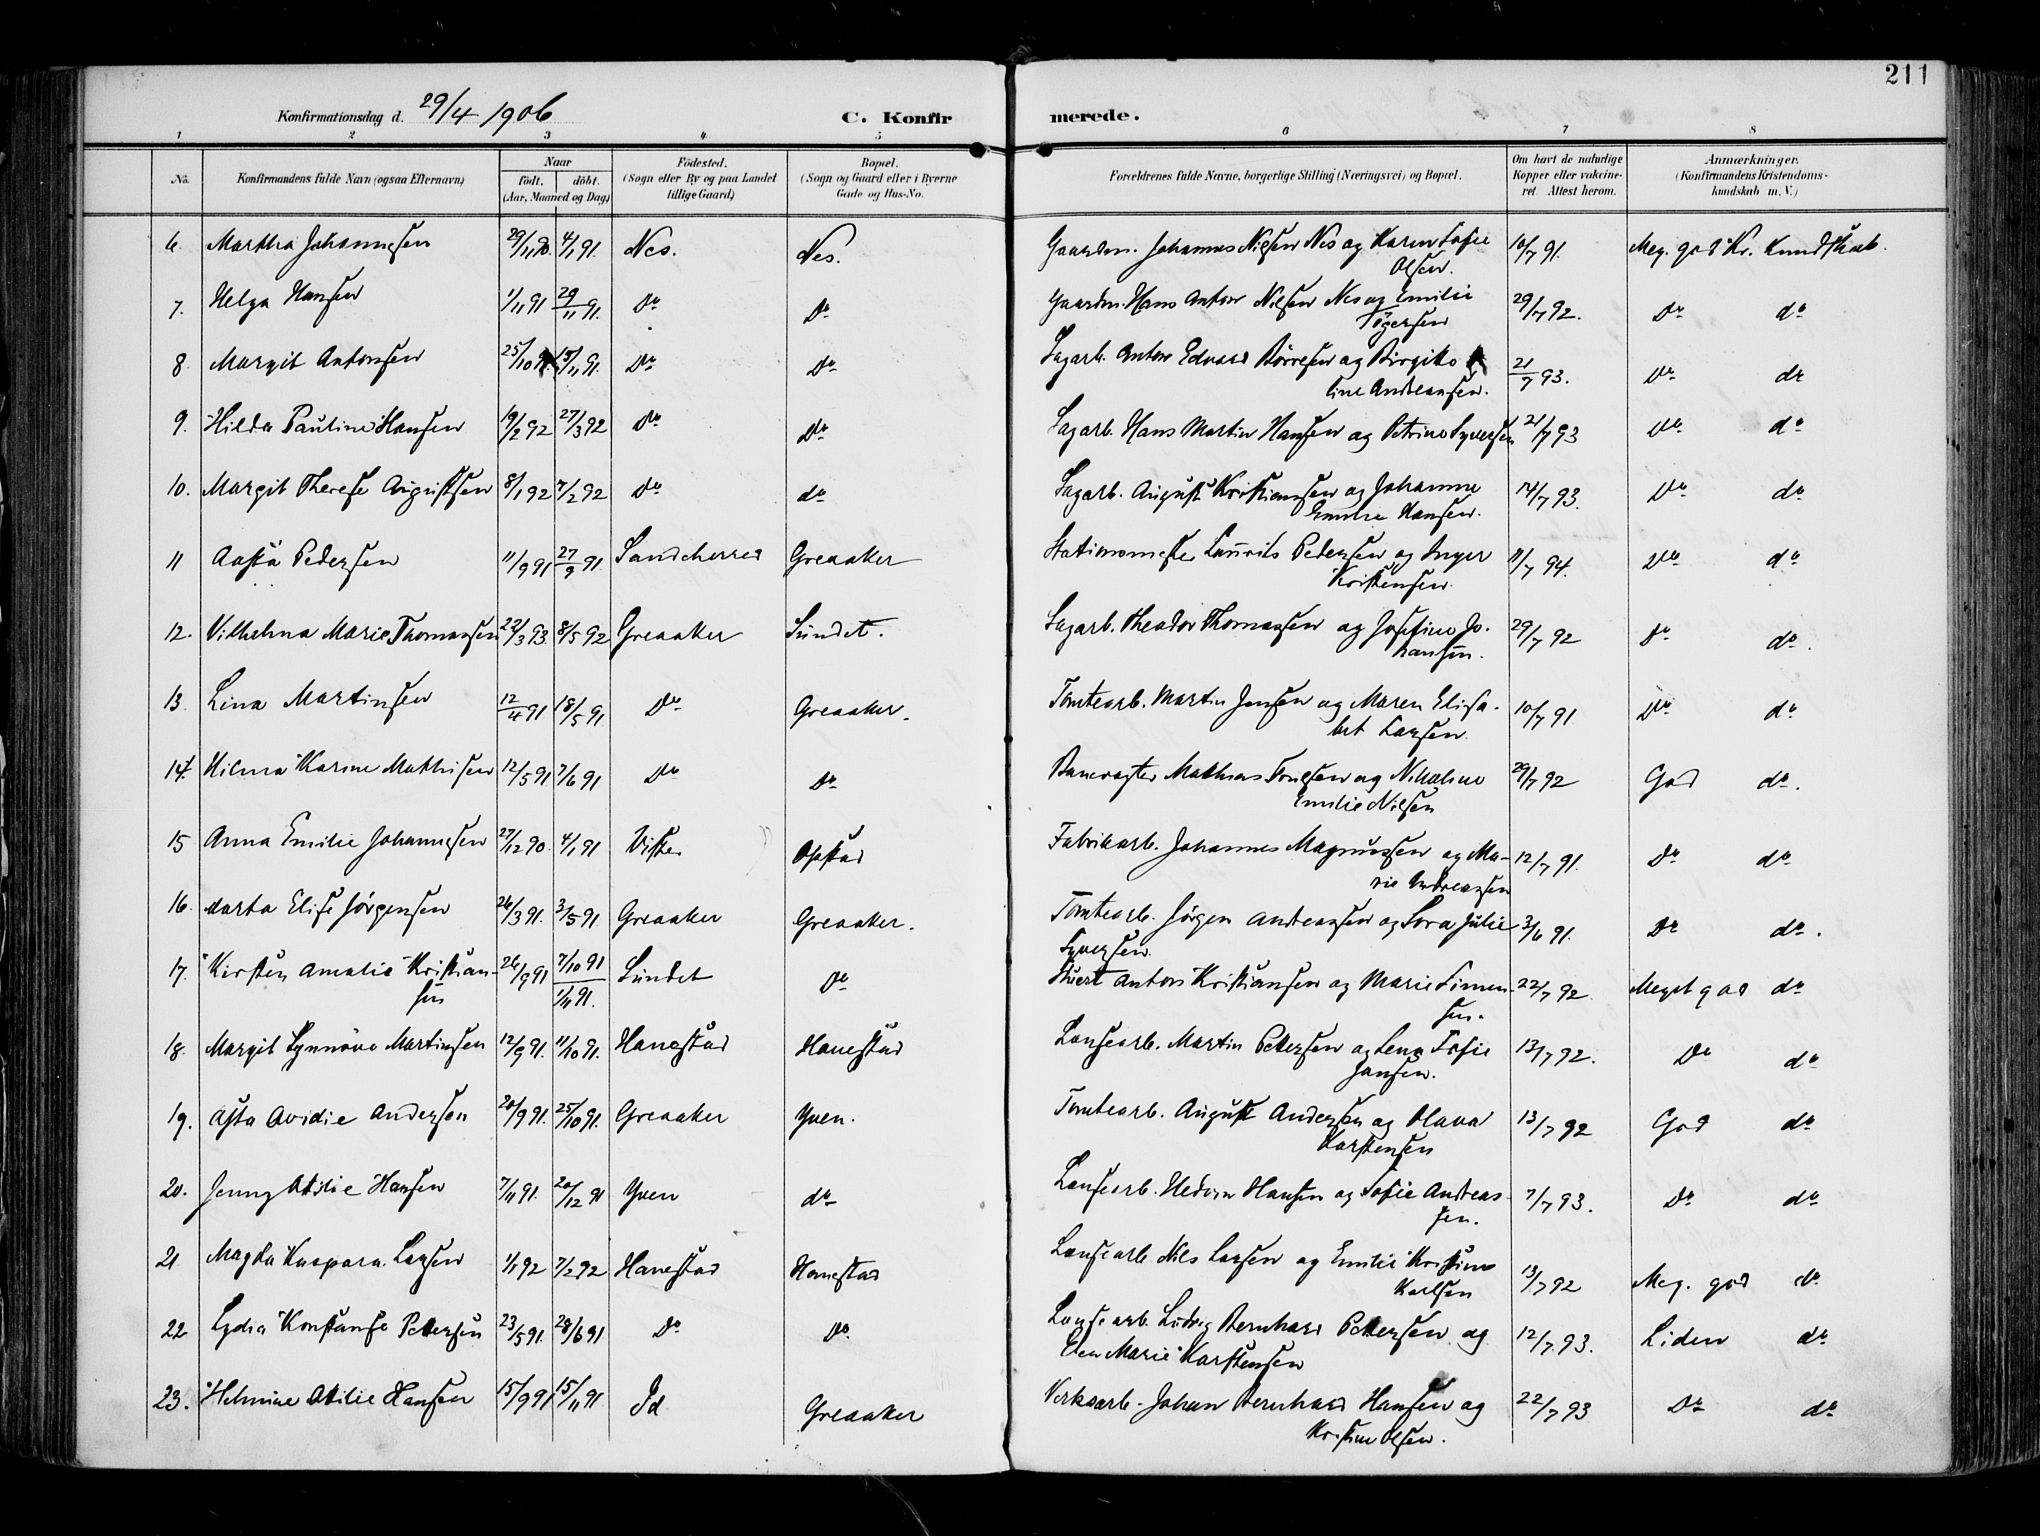 211
Konfirmationsdag d. 29/4 1906 C. Konfirmerede.
1 2 3 4 5 6 7 8
No. Konfirmandens fulde Navn (ogsaa Efternavn) Naar født. døbt. (Aar, Maaned og Dag) Fødested. (Sogn eller By og paa Landet tillige Gaard) Bopæl. (Sogn og Gaard eller i Byerne Gade og Hus-No. Forældrenes fulde Navne, borgerlige Stilling (Næringsvei) og Bopæl. Om havt de naturlige Kopper eller vakcineret. Attest herom. Anmærkninger. (Konfirmandens Kristendomskundskab m. V.)
6 Martha Johannesen 29/11 90. 4/1 91. Nes. Nes. Gaardm. Johannes Nielsen Nes og Karen Sofie Olsen. 10/7 91. Meg. god Kr. Kundskab.
7. Helga Hansen 1/11 91 29/11 91. Do Do Gaardm. Hans Anton Nielsen Nes og Emilie Tøgersen 29/7 92. Do do
8. Margit Antonsen 25/10 91. 15/11 91. Do Do Sagarb. Anton Edvard Børresen og Birgitte line Andreassen. 21/7 93. Do do
9. Hilda Pauline Hansen 19/2 92 27/3 92 Do Do Sagarb. Hans Martin Hansen og Petrine Syversen 21/7 93 Do do
10. Margit Therese Augustsen 8/1 92 7/2 92 Do do Sagarb. August Kristiansen og Johanne Emilie Hansen. 14/7 93. Do do
11 Aasta Pedersen 11/9 91 27/9 91 Sandeherred Greaaker Stationsmester Laurits Pedersen og Inger Kristensen. 11/7 94. Do do
12. Vilhelma Marie Thomassen 22/3 93. 8/5 92 Greaaker Sundet. Sagarb. Theodor Thomassen og Josefine Johansen. 29/7 92 Do do.
13 Lina Martinsen 12/4 91 18/5 91 Do Greaaker. Tomtearb. Martin Jensen og Maren Elisabet Larsen. 10/7 91 Do do
14. Hilma Karine Mathisen 12/5 91 7/6 91 Do Do Banevogter Mathias Tonesen og Nikoline Emilie Nilsen 29/7 92 God do.
15 Anna Emilie Johannesen 27/12 90. 4/1 91 Viste. Opstad Fabrikarb. Johannes Magnussen og Marie Andreassen 12/7 91. Do do
16. Marta Elise Jørgensen 26/3 91. 3/5 91 Greaaker Greaaker. Tomtearb. Jørgen Andreassen og Lora Julie Syversen. 3/6 91. Do do.
17. Kirsten Amalia Kristiansen 26/9 91 7/10 91 1/11 91. Sundet Do Anton Kristiansen og Marie Simensen. 22/7 92. Meget god do
18. Margit Synnøve Martinsen 12/9 91. 11/10 91. Hanestad Hanestad Lansearb. Martin Pettersen og Lena Sofie Jansen. 13/7 92. Do do
19. Asta Ovidie Andersen 20/9 91. 25/10 91. Greaaker Yven. Tomtearb. August Andersen og Olava Karstensen 13/7 92 God do
20. Jenny Otilie Hansen 7/11 91. 20/12 91 Yven do Lansearb. Hedvin Hansen og Sofie Andreassen. 7/7 93. Do do
21. Magda Kaspara Larsen 1/1 92 7/2 92 Hanestad Hanestad Lansearb Nils Larsen og Emilie Kristine Karlsen 13/7 92 Meg. god do
22 Lydia Konstanse Pettersen 23/5 91. 28/6 91. Do Do. Lansearb. Ludvig Bernhard Pettersen og Elen Marie Karstensen 12/7 93. Liden do
23. Helmine Otilie Hansen 15/9 91 15/11 91. Id Greaaker Verksarb. Johan Bernhard Hansen og Kristine Olsen. 22/7 93 Do do